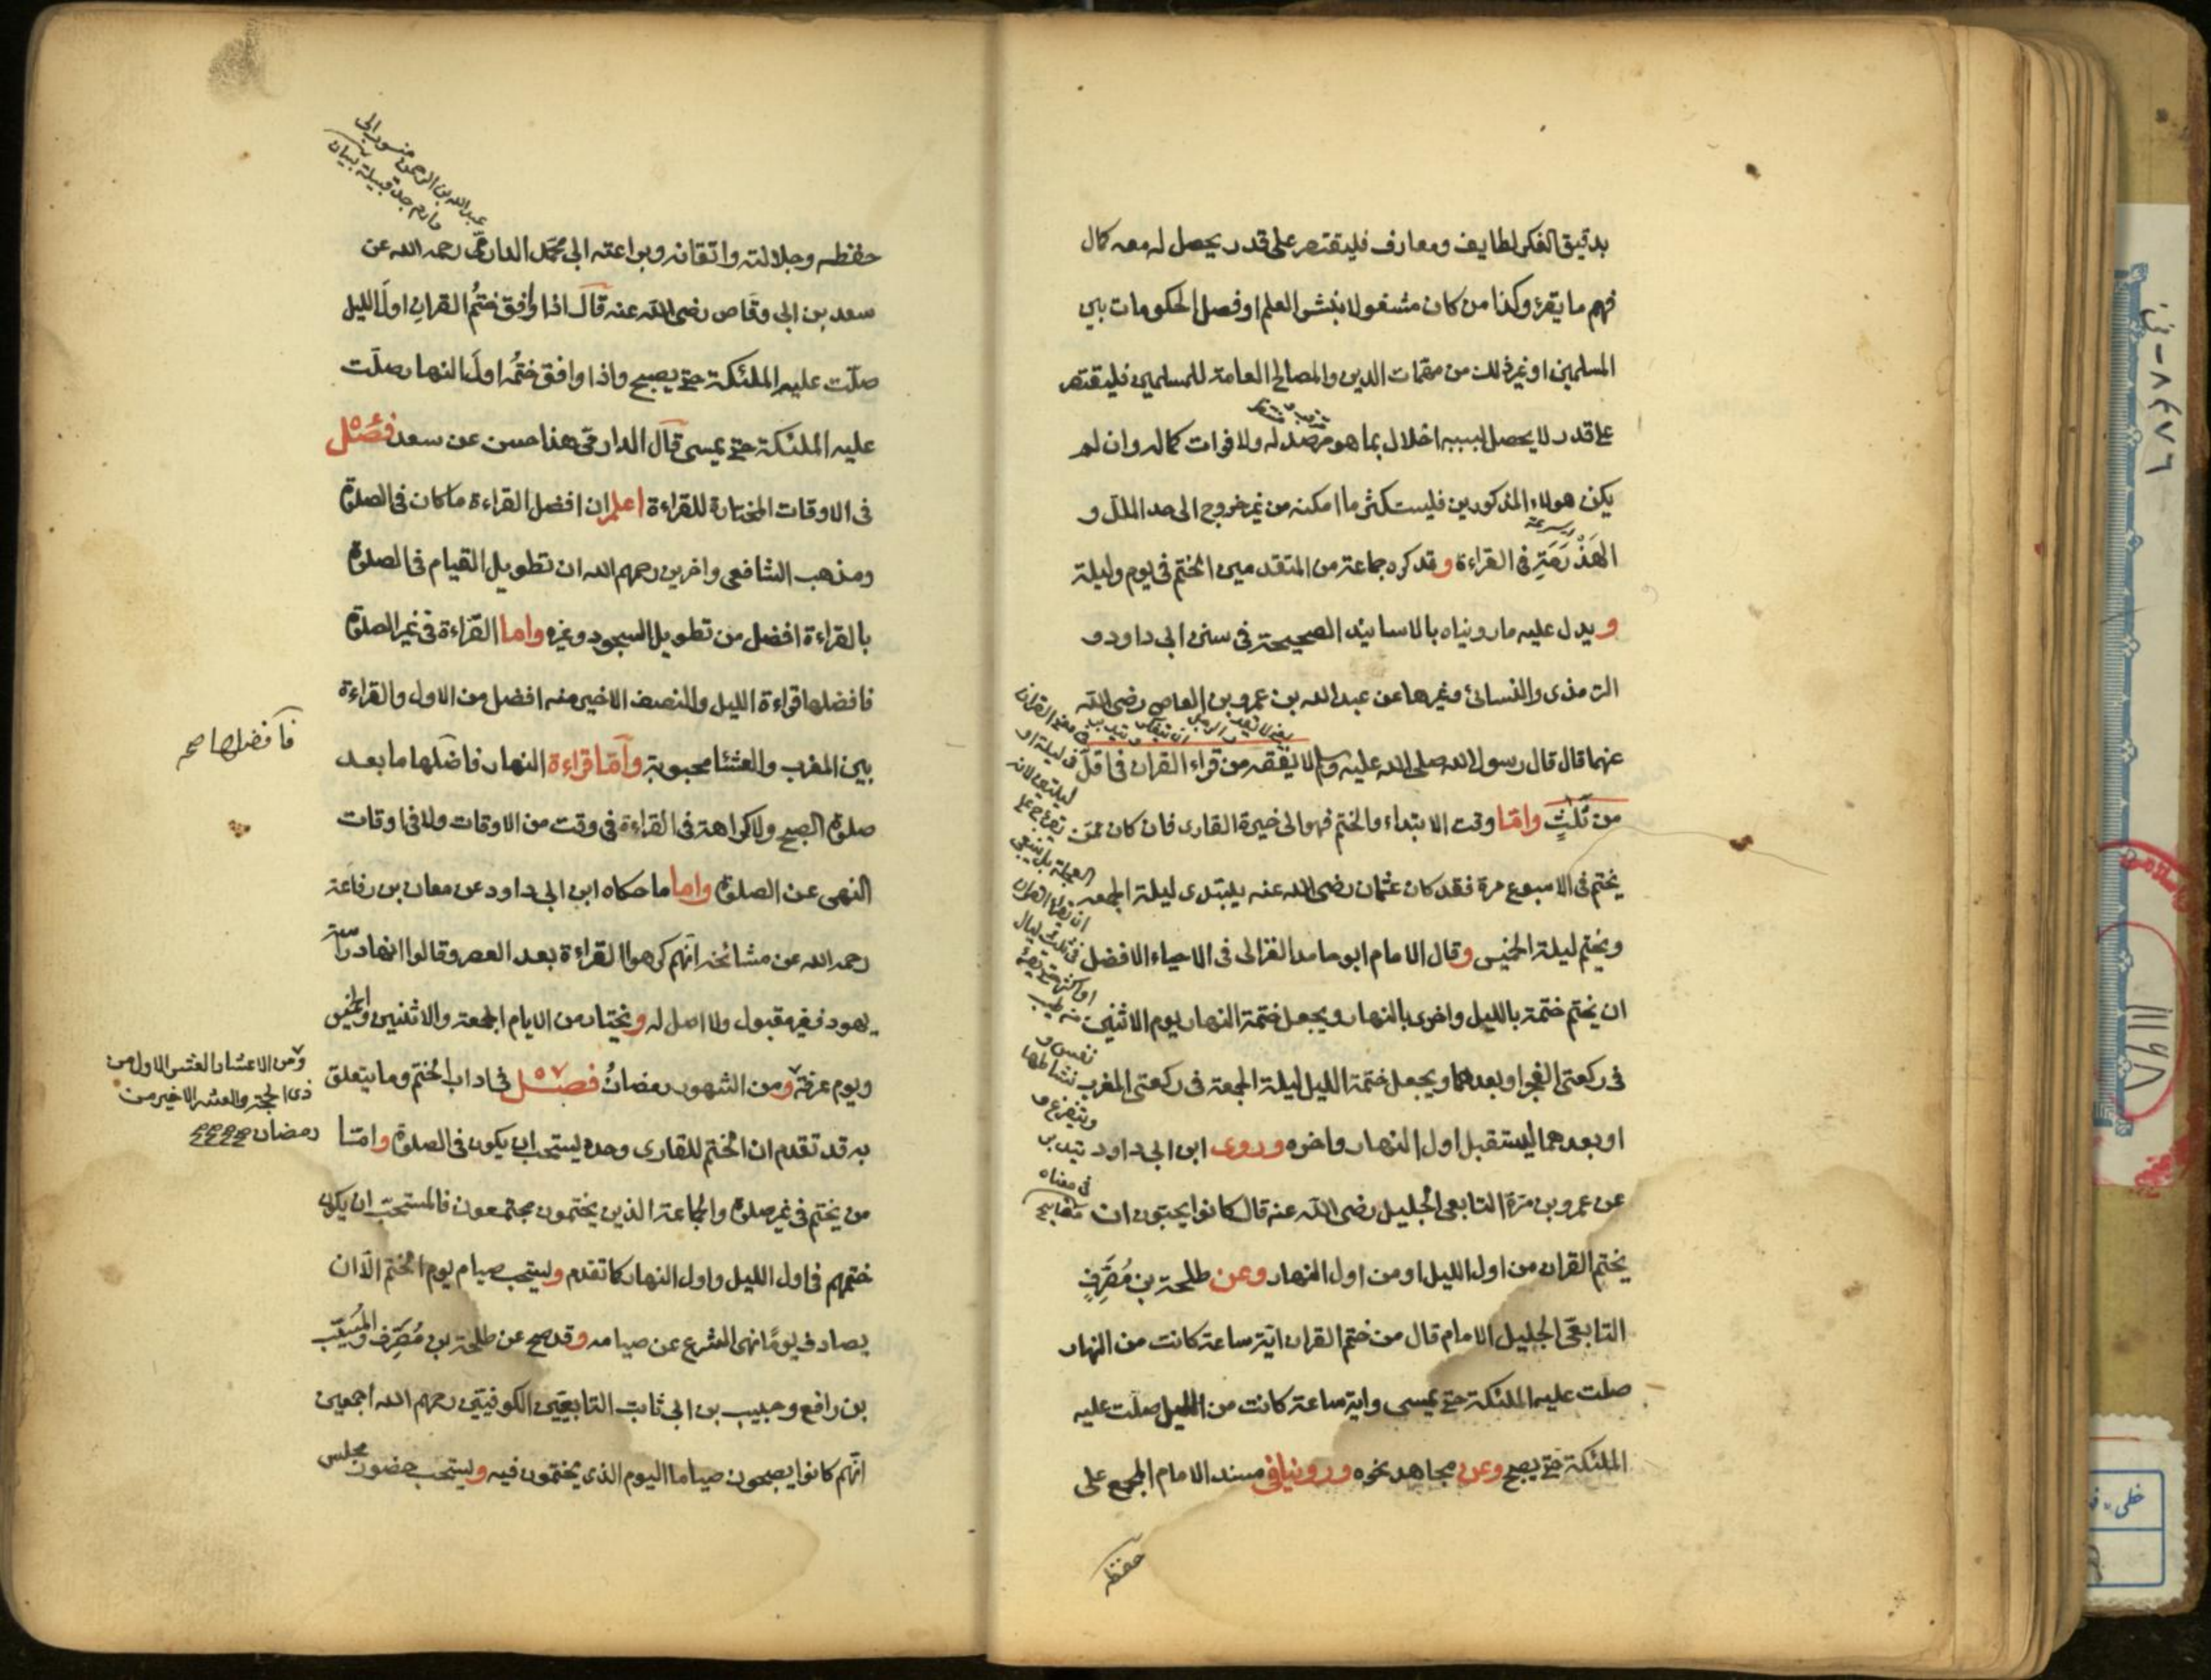 بدقيق الفكر لطايف ومعارف فليقتصر على قدر يحصل له معه كمال
فهم ما يقرؤ وكذا من كان مشغولا بنشر العلم او فصل الحكومات بين
المسلمين او غير ذلك من مهمات الدين والمصالح العامة للمسلمين فليقتصر
على قدر لا يحصل بسببه اخلال بما هو مرصد له ولا فوات كماله وان لم
يكن هولاء المذكورين فليستكثر ما امكنه من غير خروج الى حد الملل و
الهَذْرَمَةِ فى القراءة وقد كره جماعة من المتقدمين الختم فى يوم وليلة
سرعة
ويدل عليه ما رويناه بالاسانيد الصحيحة فى سنن ابى داود و
الترمذى والنسائى وغيرها عن عبد الله بن عمرو بن العاص رضى الله
عنهما قال قال رسول الله صلى الله عليه وسلم لا يفقه من قراء القران فى اقل
من ثلثٍ وامّا وقت الابتداء والختم فهو الى خيرة القارى فان كان ممّن
يختم فى الاسبوع مرة فقد كان عثمان رضى الله عنه يبتدى ليلة الجمعه
ويختم ليلة الخميس وقال الامام ابو حامد الغزالى فى الاحياء الافضل
ان يختم ختمة بالليل واخرى بالنهار ويجعل ختمة النهار يوم الاثنين
فى ركعتى الفجر او بعدهما ويجعل ختمة الليل ليلة الجمعة فى ركعتى المغرب
او بعدهما ليستقبل اول النهار واخره وروى ابن ابى داود
عن عمرو بن مرّة التابعى الجليل رضى الله عنه قال كانوا يحبّون ان
يختم القران من اول الليل او من اول النهار وعن طلحة بن مُصَرِّفٍ
التابعىّ الجليل الامام قال من ختم القران ايّة ساعة كانت من النهار
صلّت عليه الملئكة حتى يمسى واية ساعة كانت من الليل صلّت عليه
الملئكة حتى يصبح وعن مجاهد نحوه وروينا فى مسند الامام المجمع على
حفظه
ان يقراء القران
فى ثلث ليال
نفس و
نشاطها
فى معناه
عبد الله بن الرحمن منسوب الى
دارم جد قبيلة
حفظه وجلالته واتقانه وبراعته ابى محمّد الدارمىّ رحمه الله عن
سعد بن ابى وقّاص رضى الله عنه قال اذا وافق ختمُ القران اولَ الليل
صلّت عليه الملئكة حتى يصبح واذا وافق ختمُه اولَ النهار صلّت
عليه الملئكة حتى يمسى قال الدارمىّ هذا حسن عن سعد فصل
فى الاوقات المختارة للقراءة اعلم ان افضل القراءة ما كان فى الصلوة
ومذهب الشافعى واخرين رحمهم الله ان تطويل القيام فى الصلوة
بالقراءة افضل من تطويل السجود وغيره واما القراءة فى غير الصلوة
فافضلها قراءة الليل والنصف الاخير منه افضل من الاول والقراءة
بين المغرب والعشا محبوبة وامّا قراءة النهار فاضلها ما بعد
فافضلها صح
صلوة الصبح ولا كراهة فى القراءة فى وقت من الاوقات ولا فى اوقات
النهى عن الصلوة واما ما حكاه ابن ابى داود عن معان بن رفاعة
رحمه الله عن مشائخه انّهم كرهوا القراءة بعد العصر وقالوا انها دراسة
يهود فغير مقبول ولا اصل له ويختار من الايام الجمعة والاثنين والخميس
ويوم عرفة ومن الشهور رمضانُ فصل فى اداب الختم وما يتعلق
ومن الاعشار العشر الاول من
ذى الحجة والعشر الاخير من
رمضان
به قد تقدم ان الختم للقارى وحده يستحب ان يكون فى الصلوة وامّا
من يختم فى غير صلوة والجماعة الذين يختمون مجتمعون فالمستحبّ ان يكون
ختمهم فى اول الليل واول النهار كما تقدم ويستحب صيام يوم الختم الّا ان
يصادف يومًا نهى الشرع عن صيامه وقد صح عن طلحة بن مُصَرِّف والمُسَيِّب
بن رافع وحبيب بن ابى ثابت التابعيّين الكوفيّين رحمهم الله اجمعين
انّهم كانوا يصبحون صياما اليوم الذى يختمون فيه ويستحب حضور مجلس